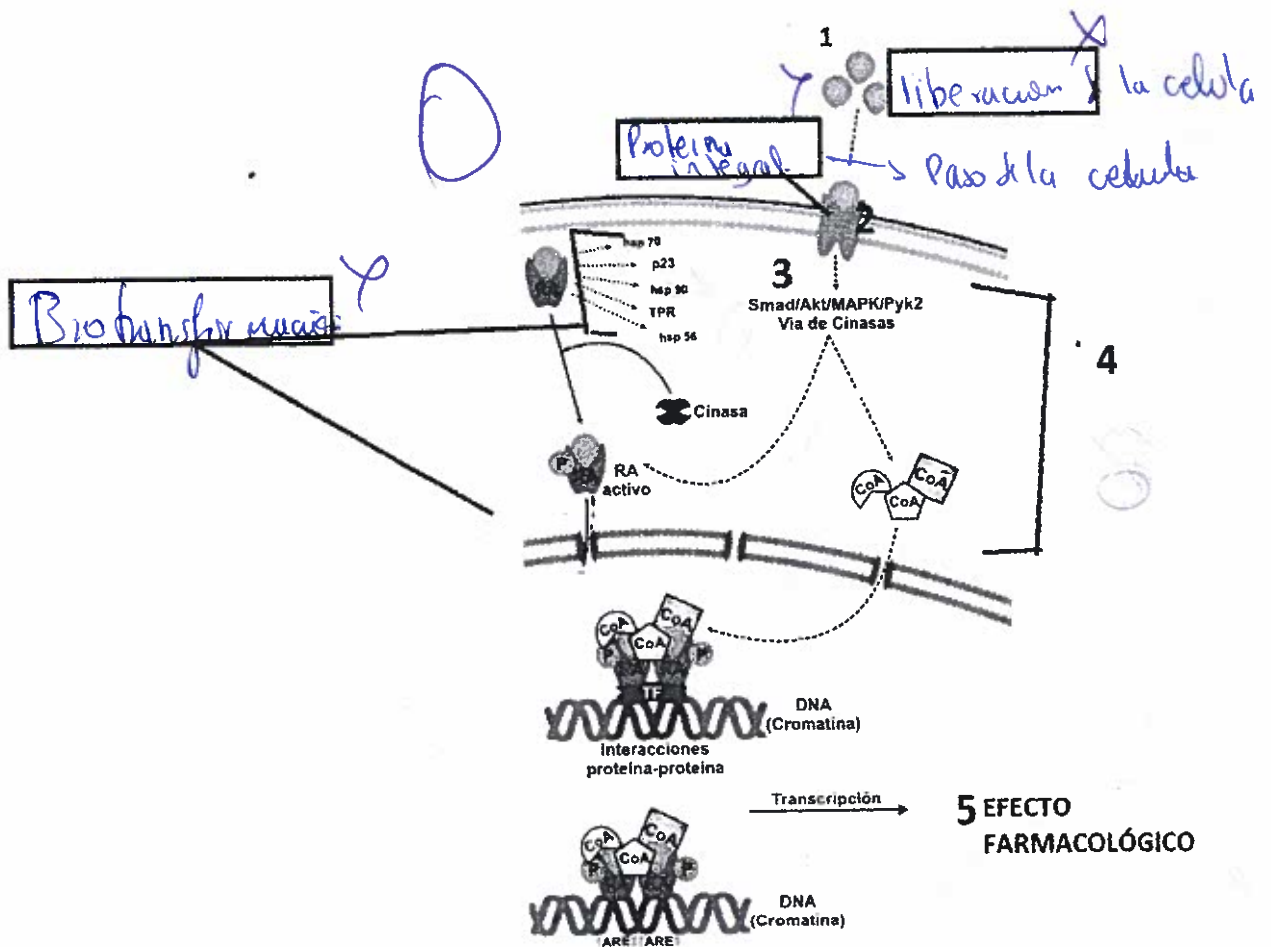 1
liberación
la celula
Proteina
integral
Paso
la
2
hsp 70
p23
hsp 90
TPR
hsp 56
3
Smad/Akt/MAPK/Pyk2
Via de Cinasas
4
Cinasa
P
RA
activo
CoA
CoA
CoA
CoA
CoA
CoA
P
P
TF
DNA
(Cromatina)
Interacciones
proteína-proteína
Transcripción
5 EFECTO
FARMACOLÓGICO
CoA
CoA
CoA
P
P
DNA
(Cromatina)
ARE ARE